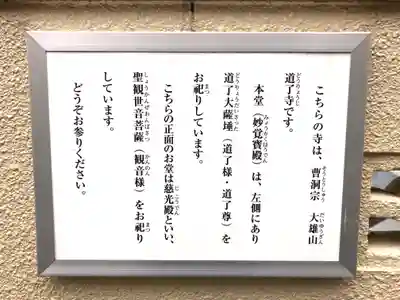 こちらの寺は、曹洞宗　大雄山
道了寺です。
本堂（妙覚寳殿）は、左側にあり
道了大薩埵（道了様・道了尊）を
お祀りしています。
こちらの正面のお堂は慈光殿といい、
聖観世音菩薩（観音様）をお祀り
しています。
どうぞお参りください。